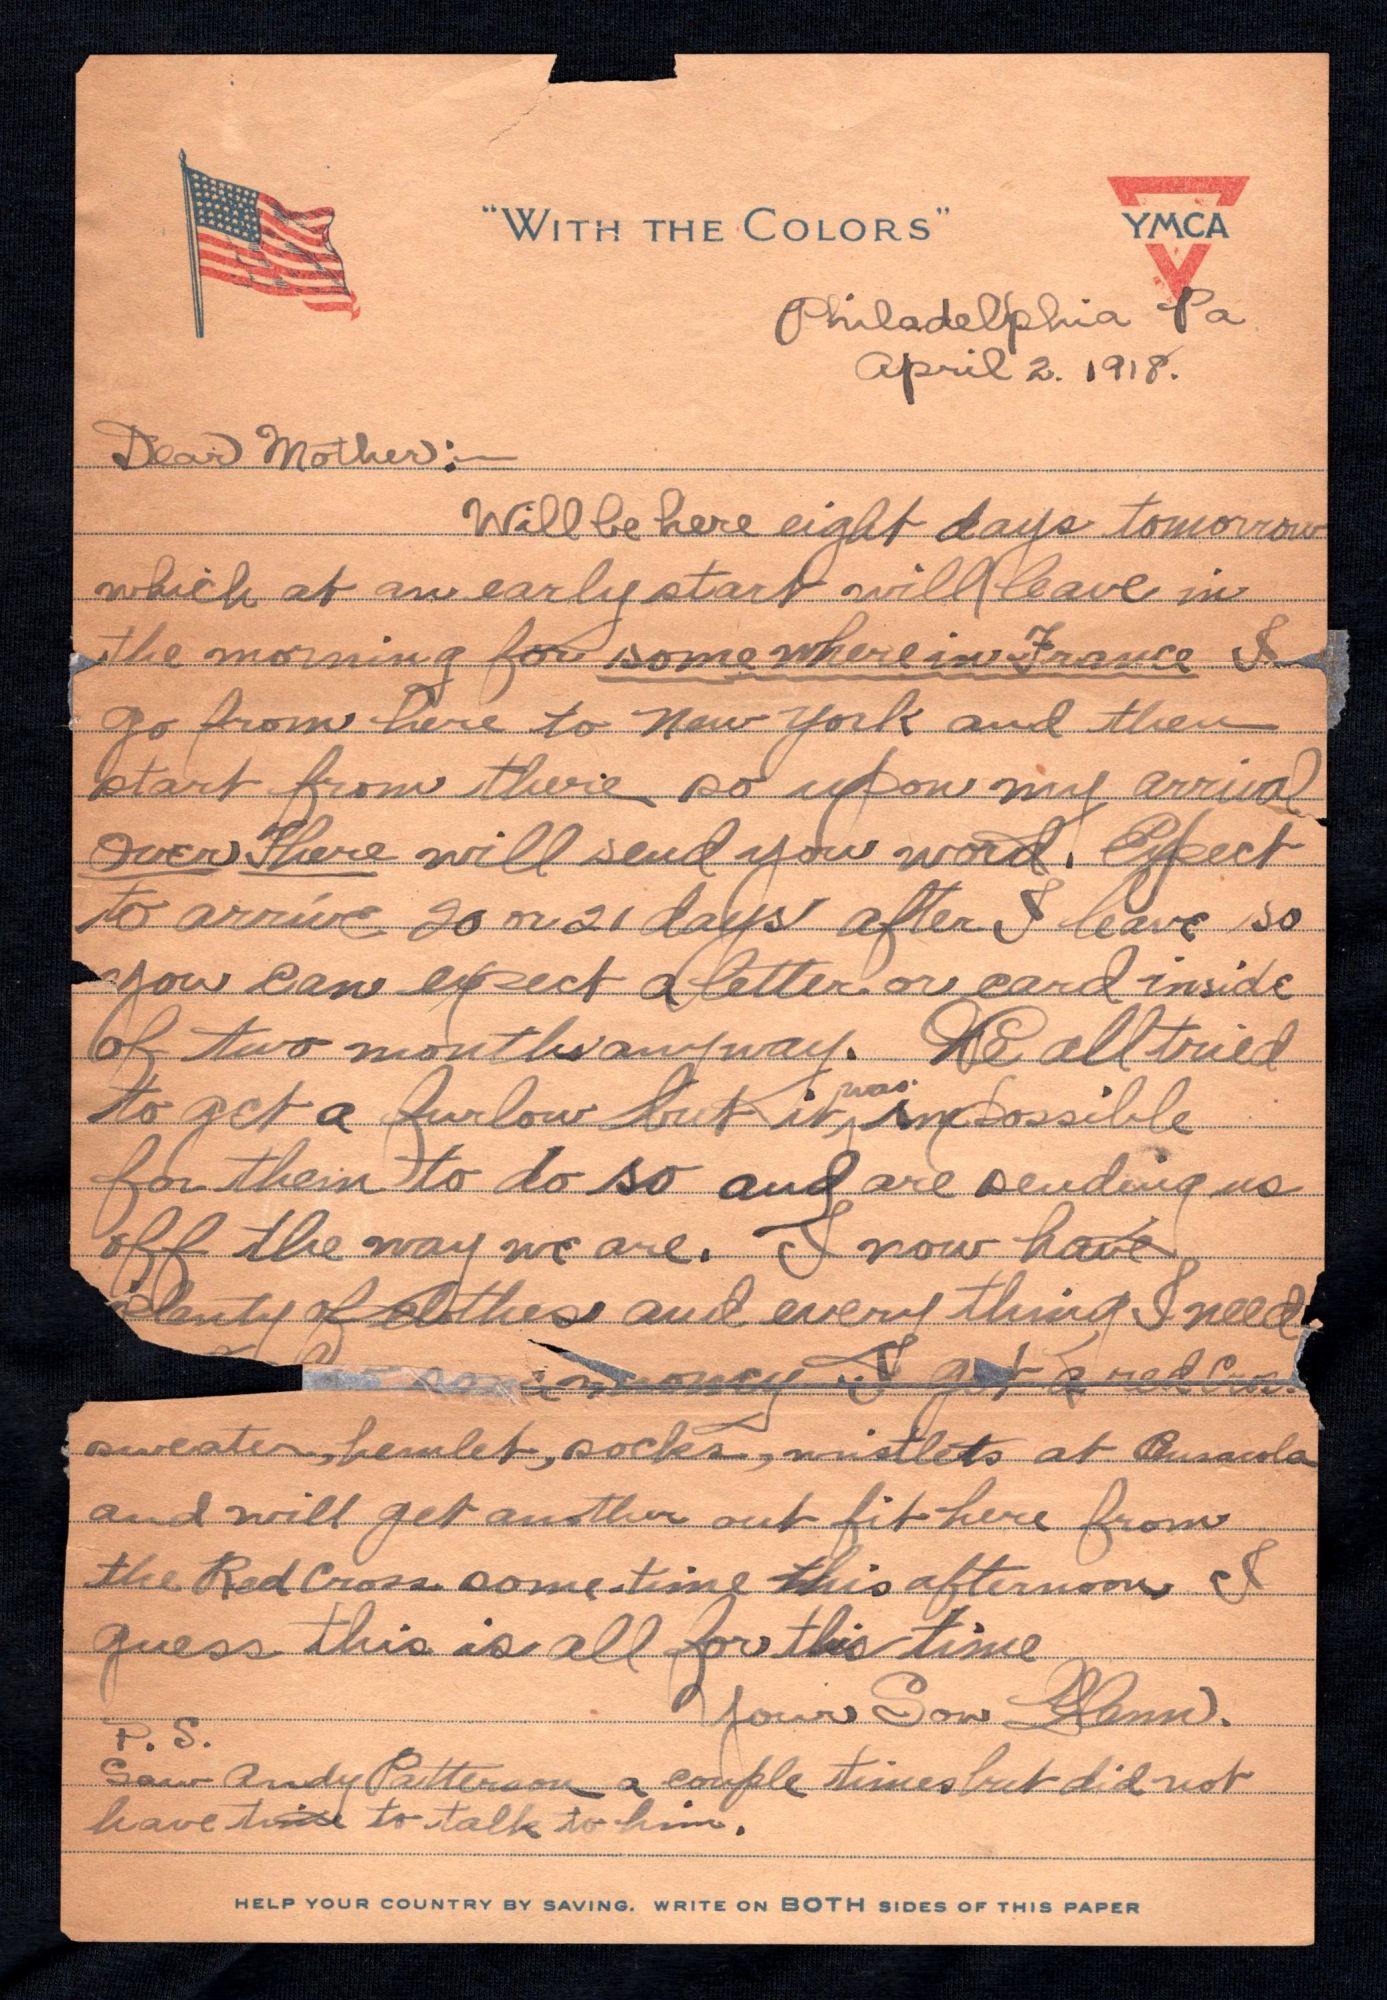 "WITH THE COLORS"
YMCA
Philadelphia Pa
April 2. 1918.
Dear Mother:—
Will be here eight days tomorrow
which at an early start will leave in
the morning for somewhere in France I
go from here to New York and then
start from there so upon my arrival
Over There will send you word. Expect
to arrive 20 or 21 days after I leave so
you can expect a letter or card inside
of two months anyway. We all tried
to get a furlow but it was impossible
for them to do so and are sending us
off the way we are. I now have
plenty of clothes and every thing I need
some money I got a red Cross
sweater, hemlet, socks, wristlets at Pensacola
and will get another out fit here from
the Red Cross some time this afternoon I
guess this is all for this time
Your Son Glenn.
P. S.
Saw Andy Patterson a couple times but did not
have time to talk to him.
HELP YOUR COUNTRY BY SAVING. WRITE ON BOTH SIDES OF THIS PAPER